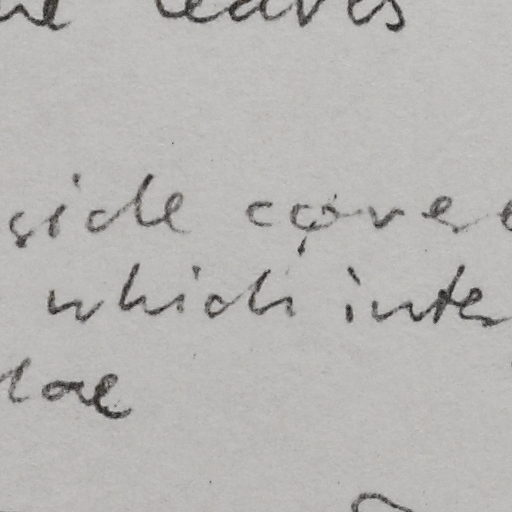 leaves
side cove
which inte